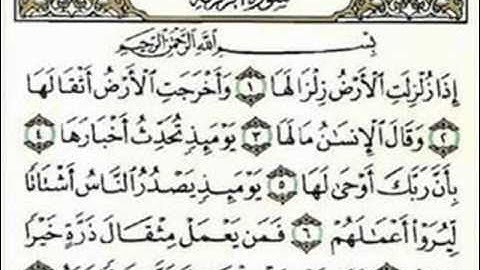 بِسْمِ اللَّهِ الرَّحْمَٰنِ الرَّحِيمِ
إِذَا زُلْزِلَتِ الْأَرْضُ زِلْزَالَهَا ١ وَأَخْرَجَتِ الْأَرْضُ أَثْقَالَهَا
٢ وَقَالَ الْإِنسَانُ مَا لَهَا ٣ يَوْمَئِذٍ تُحَدِّثُ أَخْبَارَهَا ٤
بِأَنَّ رَبَّكَ أَوْحَىٰ لَهَا ٥ يَوْمَئِذٍ يَصْدُرُ النَّاسُ أَشْتَاتًا
لِّيُرَوْا أَعْمَالَهُمْ ٦ فَمَن يَعْمَلْ مِثْقَالَ ذَرَّةٍ خَيْرًا